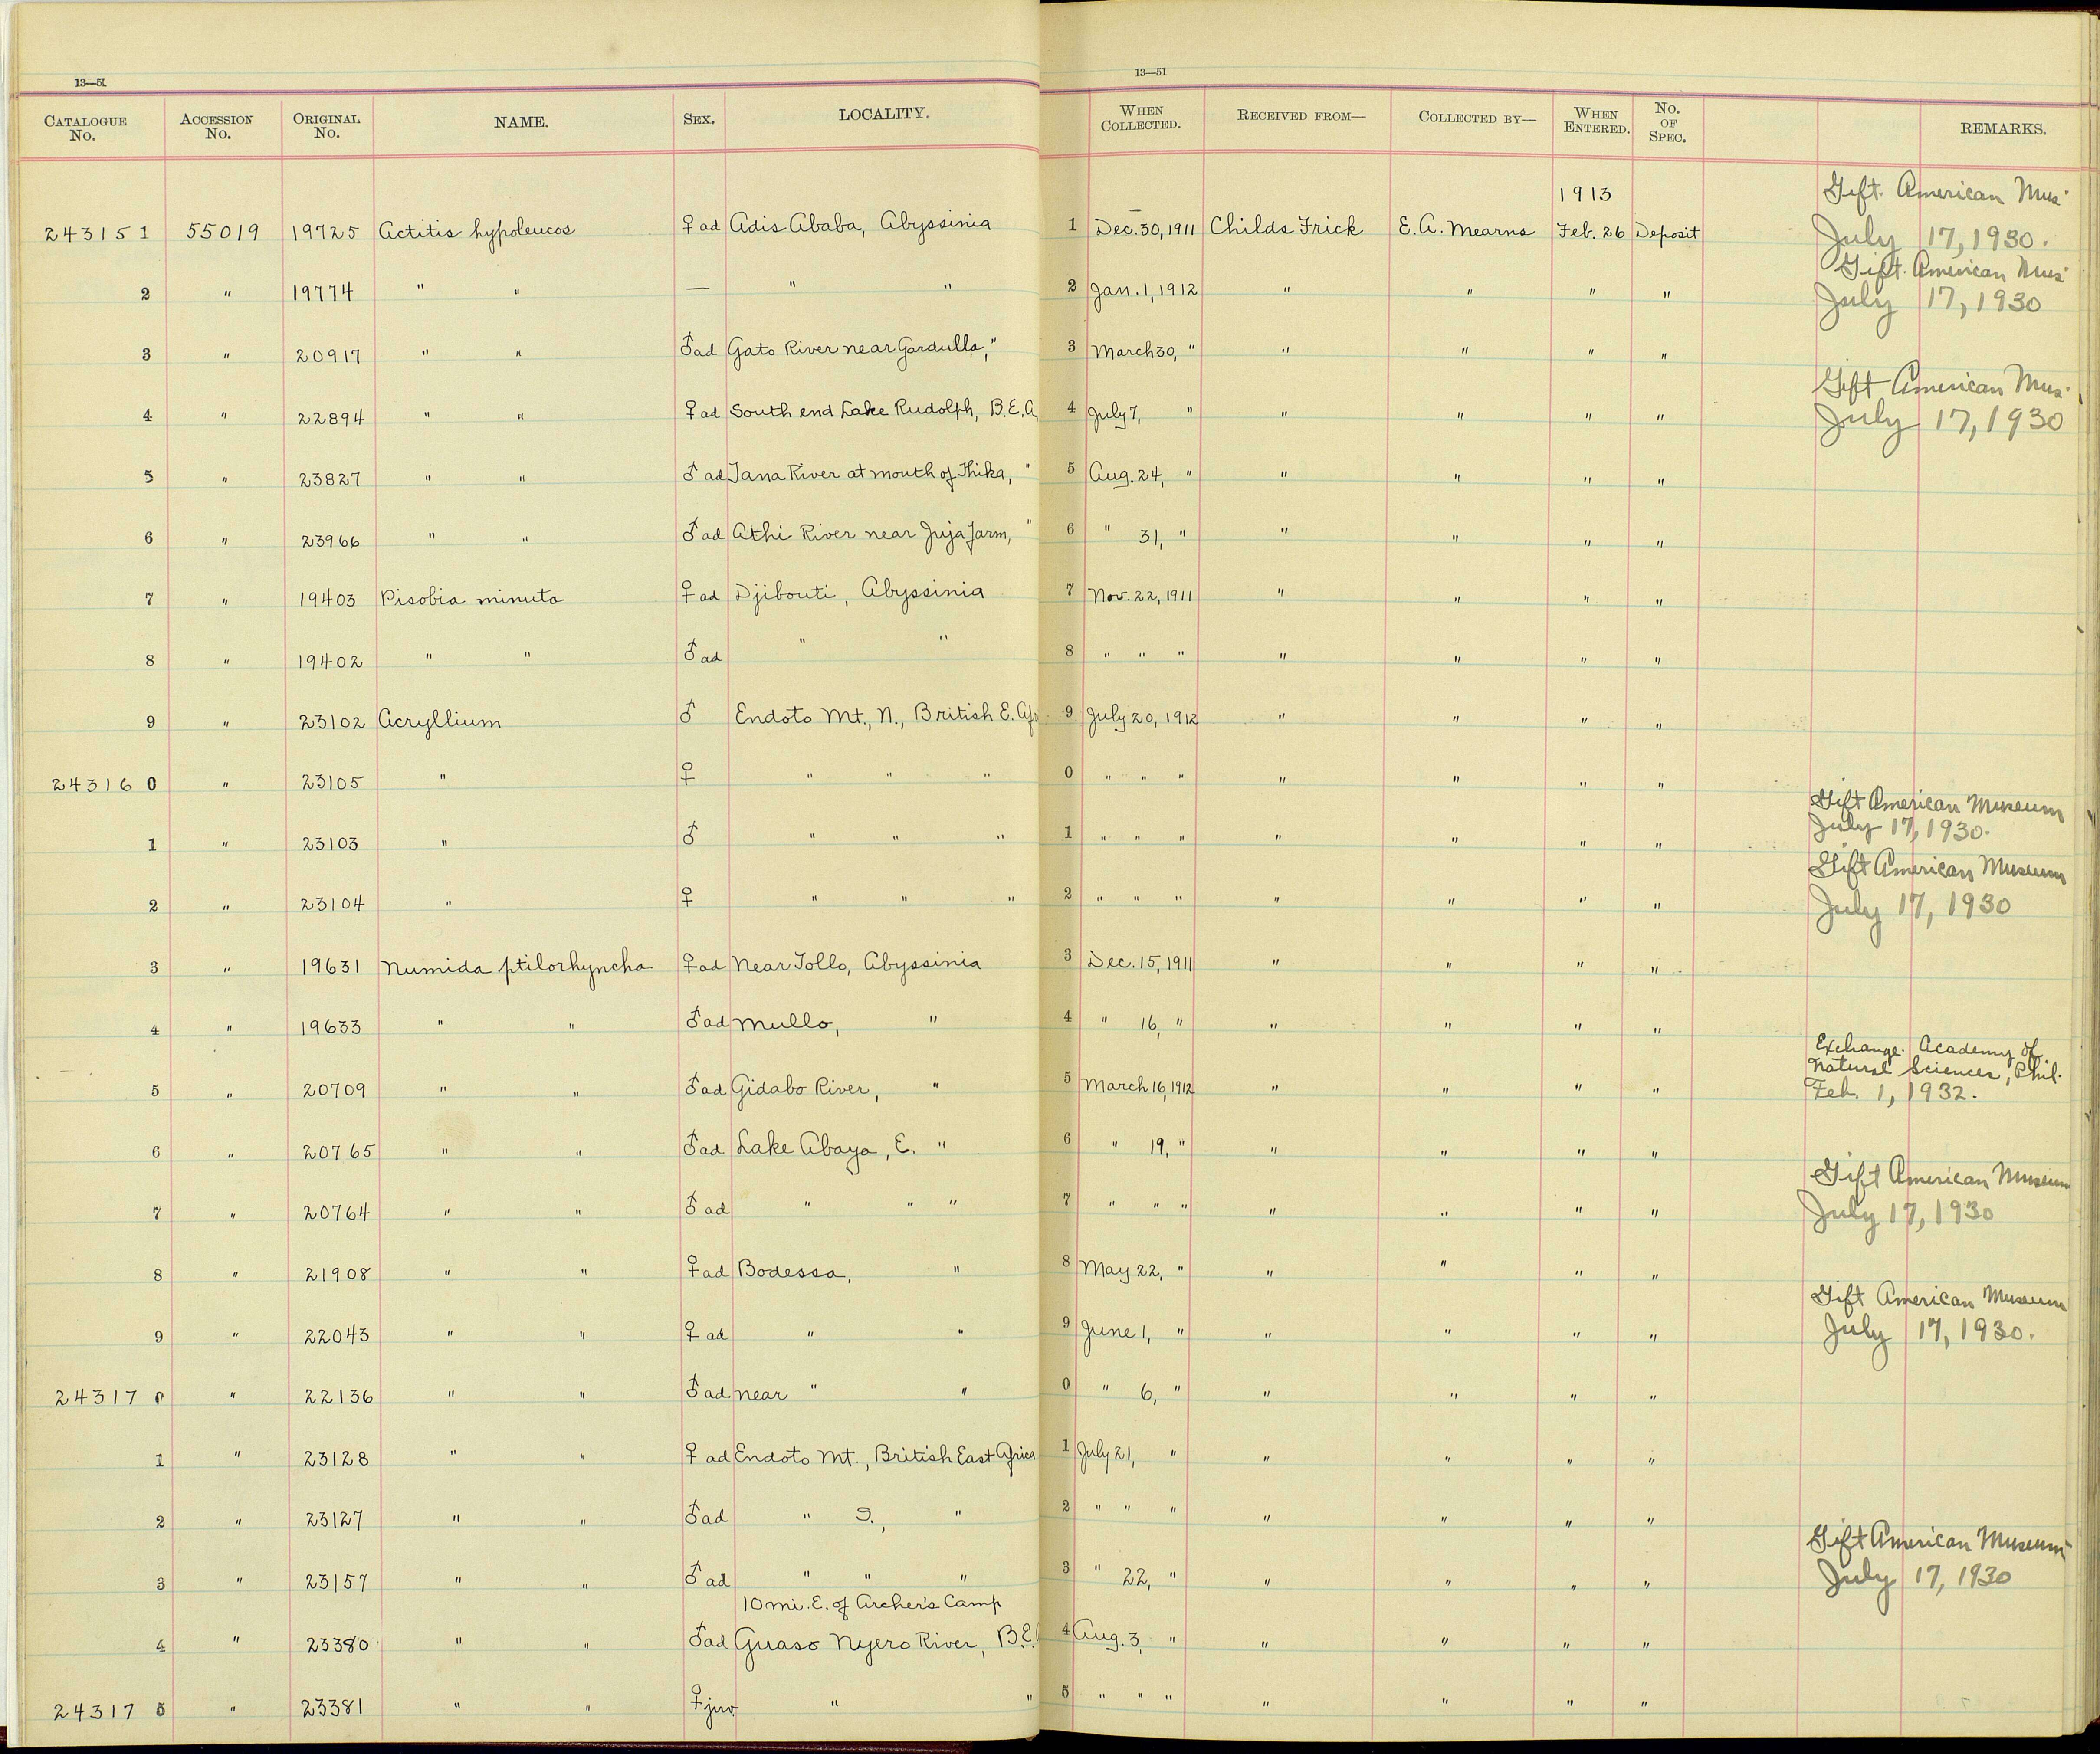 13—51
13—51
CATALOGUE No. ACCESSION No. ORIGINAL No. NAME. SEX. LOCALITY. WHEN COLLECTED. RECEIVED FROM— COLLECTED BY— WHEN ENTERED. No. OF SPEC. REMARKS.
1913 Gift. American Mus.
243151 55019 19725 Actitis hypoleucos ♀ ad Adis Ababa, Abyssinia 1 Dec. 30, 1911 Childs Frick E. A. Mearns Feb. 26 Deposit July 17, 1930.
Gift. American Mus.
2 " 19774 " " — " " 2 Jan. 1, 1912 " " " " July 17, 1930
3 " 20917 " " ♂ ad Gato River near Gardulla, " 3 March 30, " " " " "
Gift American Mus.
4 " 22894 " " ♀ ad South end Lake Rudolph, B.E.A 4 July 7, " " " " " July 17, 1930
5 " 23827 " " ♂ ad Tana River at mouth of Thika, " 5 Aug. 24, " " " " "
6 " 23966 " " ♂ ad Athi River near Juja farm, " 6 " 31, " " " " "
7 " 19403 Pisobia minuta ♀ ad Djibouti, Abyssinia 7 Nov. 22, 1911 " " " "
8 " 19402 " " ♂ ad " " 8 " " " " " " "
9 " 23102 Acryllium ♂ Endoto Mt., N., British E. Afr 9 July 20, 1912 " " " "
243160 " 23105 " ♀ " " " 0 " " " " " " "
Gift American Museum
1 " 23103 " ♂ " " " 1 " " " " " " " July 17, 1930.
Gift American Museum
2 " 23104 " ♀ " " " 2 " " " " " " " July 17, 1930
3 " 19631 Numida ptilorhyncha ♀ ad Near Tollo, Abyssinia 3 Dec. 15, 1911 " " " "
4 " 19633 " " ♂ ad Mullo, " 4 " 16, " " " " "
Exchange. Academy of
Natural Sciences, Phil.
5 " 20709 " " ♂ ad Gidabo River, " 5 March 16, 1912 " " " " Feb. 1, 1932.
6 " 20765 " " ♂ ad Lake Abaya, E. " 6 " 19, " " " " "
Gift American Museum
7 " 20764 " " ♂ ad " " " 7 " " " " " " " July 17, 1930
8 " 21908 " " ♀ ad Bodessa, " 8 May 22, " " " " "
Gift American Museum
9 " 22043 " " ♀ ad " " 9 June 1, " " " " " July 17, 1930.
243170 " 22136 " " ♂ ad near " " 0 " 6, " " " " "
1 " 23128 " " ♀ ad Endoto Mt., British East Africa 1 July 21, " " " " "
2 " 23127 " " ♂ ad " S., " 2 " " " " " " "
Gift American Museum
3 " 23157 " " ♂ ad " " " 3 " 22, " " " " " July 17, 1930
10 mi. E. of Archer's Camp
4 " 23380 " " ♂ ad Guaso Nyero River, B.E. 4 Aug. 3, " " " " "
243175 " 23381 " " ♀ juv. " " 5 " " " " " " "